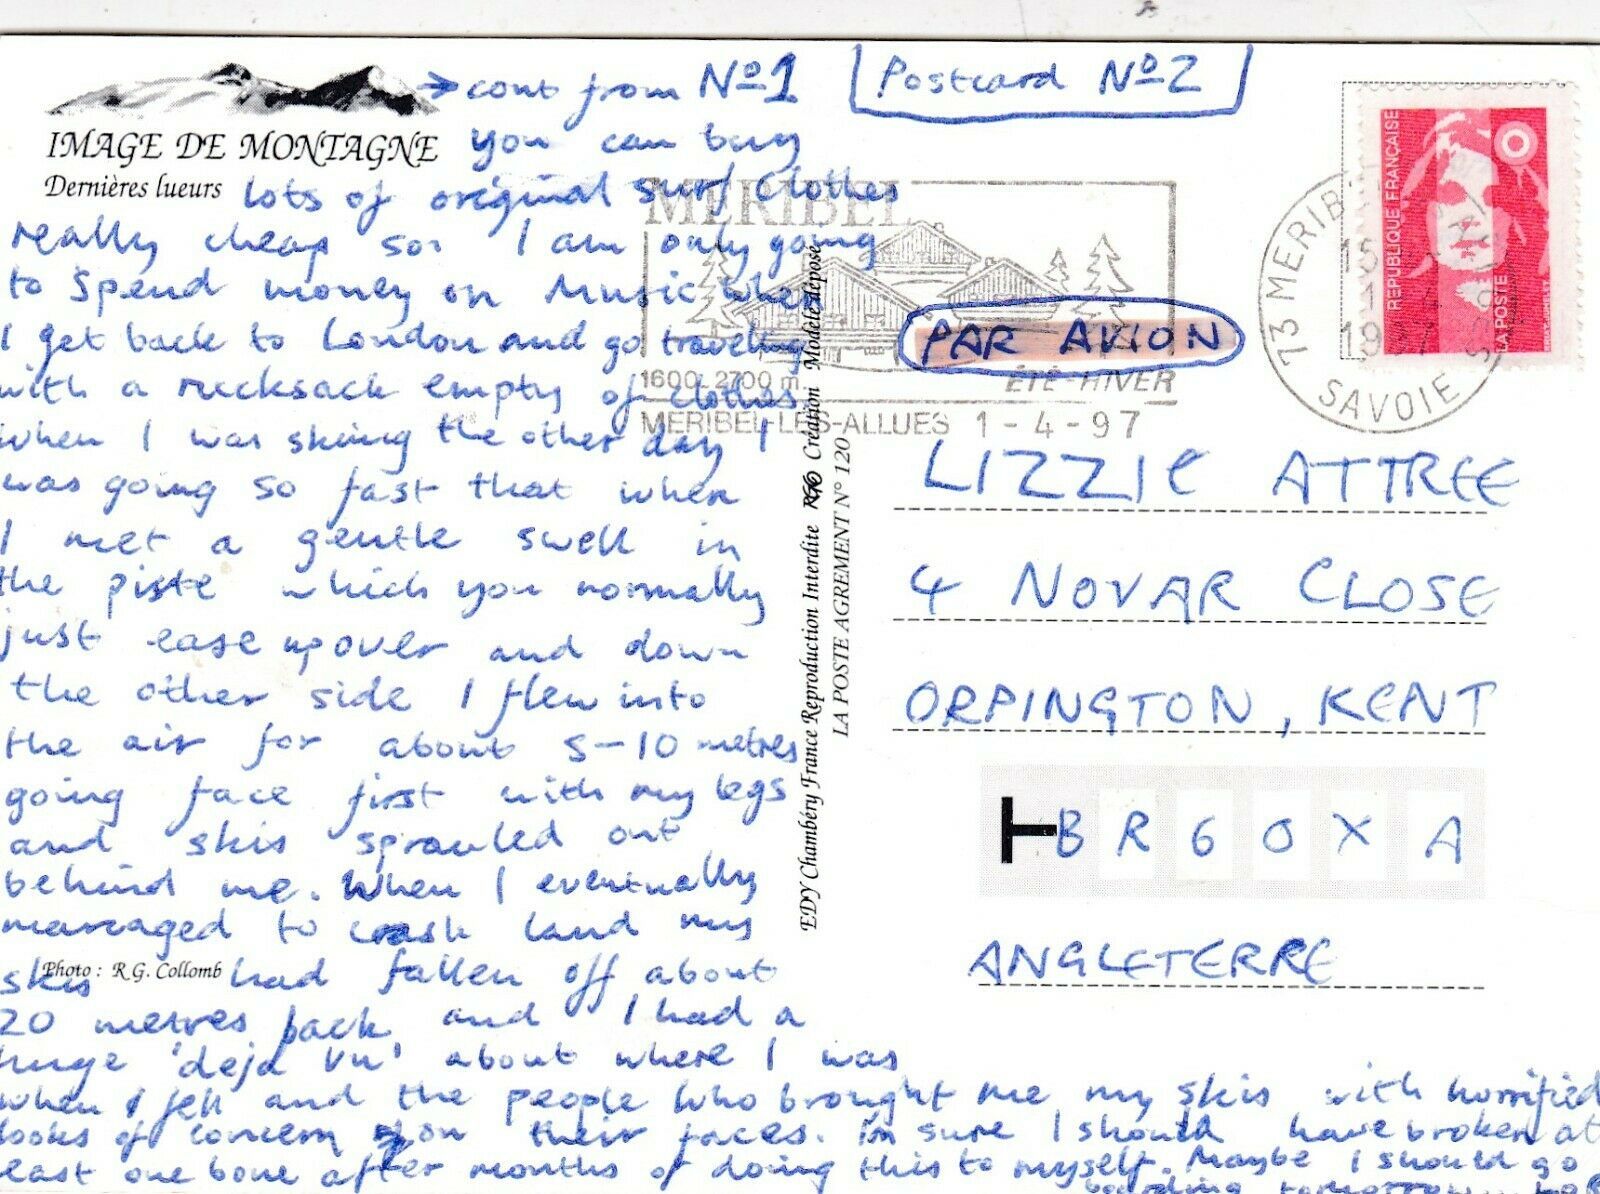 → cont from Nº1
Postcard Nº2
IMAGE DE MONTAGNE
Dernières lueurs
you can buy
lots of original surf clothes
really cheap so I am only going
to spend money on Music when
I get back to London and go traveling
with a rucksack empty of clothes
when I was skiing the other day I
was going so fast that when
I met a gentle swell in
the piste which you normally
just ease up over and down
the other side I flew into
the air for about 5-10 metres
going face first with my legs
and skis sprawled out
behind me. When I eventually
managed to crash land my
skis had fallen off about
20 metres back and I had a
huge 'deja vu' about where I was
when I fell and the people who brought me my skis with horrified
looks of concern on their faces. im sure I should have broken at
least one bone after months of doing this to myself. Maybe I should go
boarding tomorrow
Photo : R.G. Collomb
EDY Chambéry France Reproduction Interdite Création Modèle déposé
LA POSTE AGREMENT N° 120
MERIBEL
1600-2700 m ÉTÉ-HIVER
MERIBEL-LES-ALLUES 1-4-97
PAR AVION
73 MERIBEL
15
1
1997
SAVOIE
REPUBLIQUE FRANÇAISE
LA POSTE
LIZZIE ATTREE
4 NOVAR CLOSE
ORPINGTON, KENT
BR6 0XA
ANGLETERRE